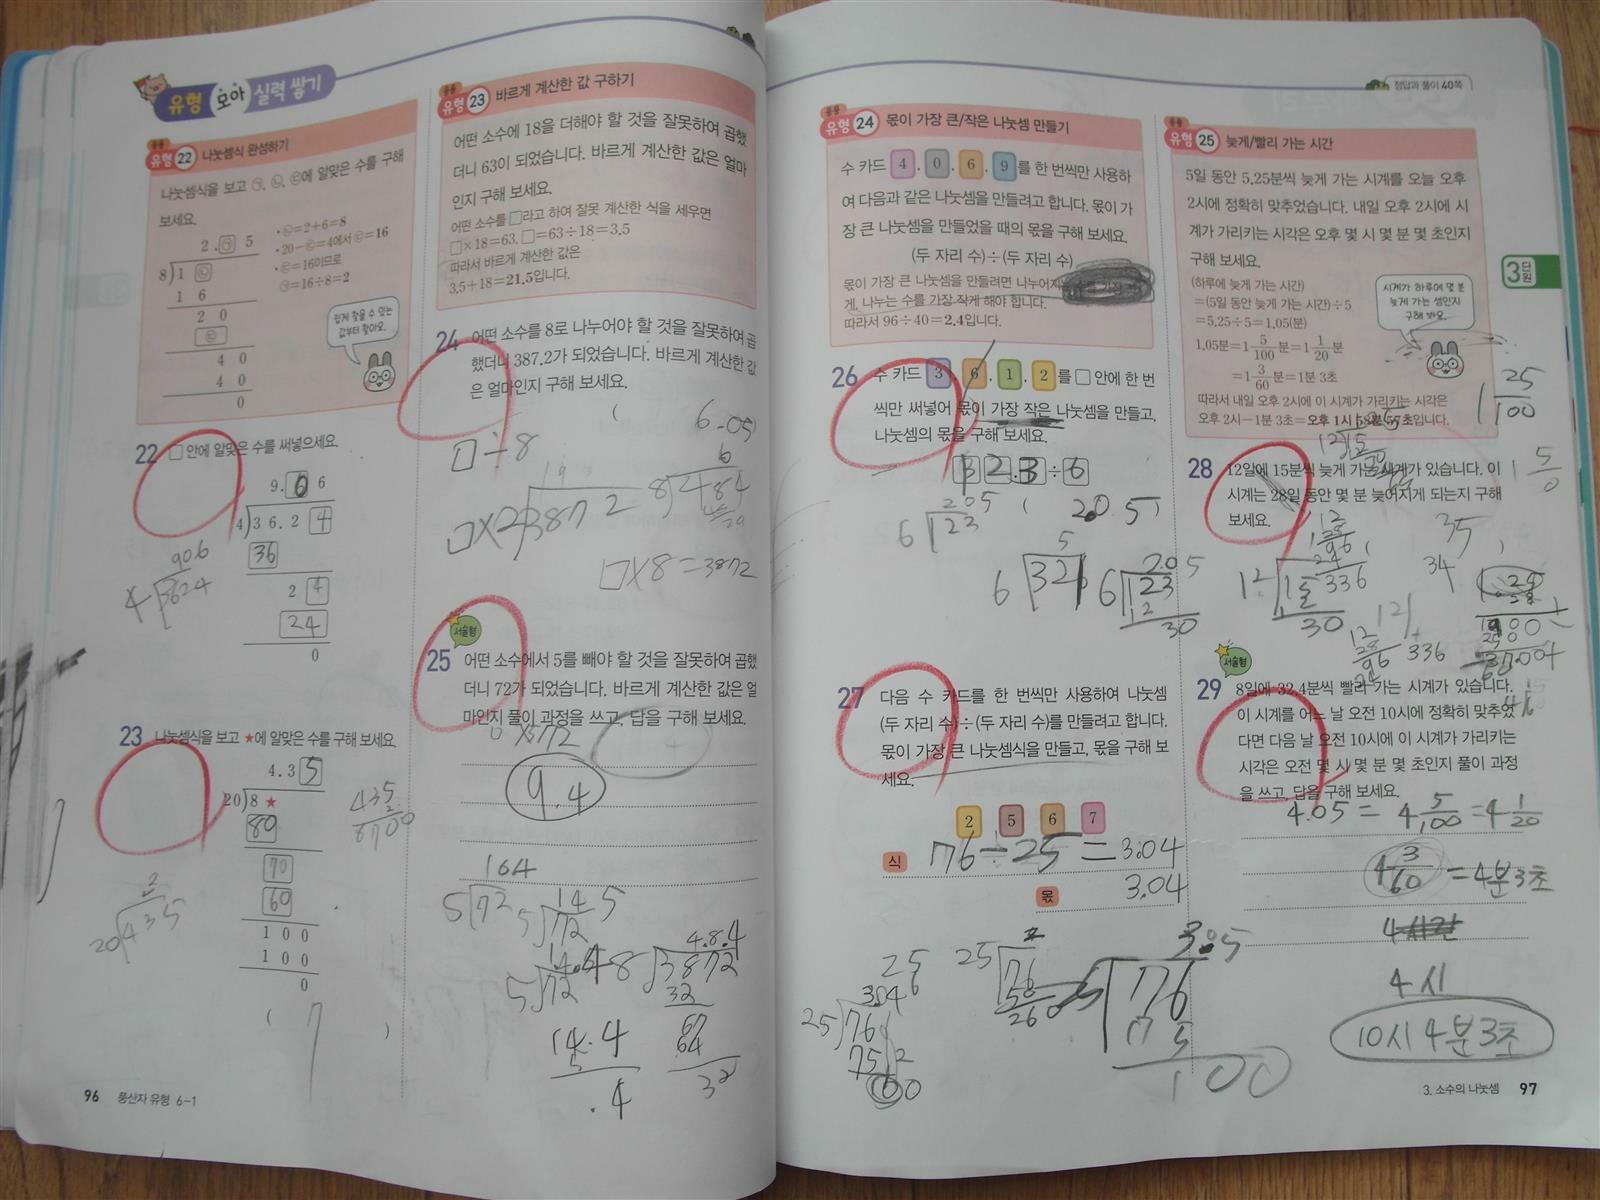 유형 모아 실력 쌓기
응용 유형 22 나눗셈식 완성하기
나눗셈식을 보고 ㉠, ㉡, ㉢에 알맞은 수를 구해
보세요.
2.㉠5
8)1㉡
1 6
2 0
㉢
4 0
4 0
0
• ㉡=2+6=8
• 20-㉢=4에서 ㉢=16
• ㉢=16이므로
㉠=16÷8=2
쉽게 찾을 수 있는
값부터 찾아요.
22 □ 안에 알맞은 수를 써넣으세요.
9.6 6
4)3 6.2 4
36
2 4
24
0
906
4)3624
23 나눗셈식을 보고 ★에 알맞은 수를 구해 보세요.
4.3 5
20)8 ★
80
70
60
1 0 0
1 0 0
0
435
2
8700
2
20)435
( 7 )
96 풍산자 유형 6-1
응용 유형 23 바르게 계산한 값 구하기
어떤 소수에 18을 더해야 할 것을 잘못하여 곱했
더니 63이 되었습니다. 바르게 계산한 값은 얼마
인지 구해 보세요.
어떤 소수를 □라고 하여 잘못 계산한 식을 세우면
□×18=63, □=63÷18=3.5
따라서 바르게 계산한 값은
3.5+18=21.5입니다.
24 어떤 소수를 8로 나누어야 할 것을 잘못하여 곱
했더니 387.2가 되었습니다. 바르게 계산한 값
은 얼마인지 구해 보세요.
( 6.05)
□÷8
6
8)484
3872
□×8=3872
서술형
25 어떤 소수에서 5를 빼야 할 것을 잘못하여 곱했
더니 72가 되었습니다. 바르게 계산한 값은 얼
마인지 풀이 과정을 쓰고, 답을 구해 보세요.
9.4
164
5)72
14 5
5)72
14.4
5)72
4.8.4
8)3872
32
67
64
32
14.4
5
.4
응용 유형 24 몫이 가장 큰/작은 나눗셈 만들기
수 카드 4, 0, 6, 9를 한 번씩만 사용하
여 다음과 같은 나눗셈을 만들려고 합니다. 몫이 가
장 큰 나눗셈을 만들었을 때의 몫을 구해 보세요.
(두 자리 수)÷(두 자리 수)
몫이 가장 큰 나눗셈을 만들려면 나누어지
게, 나누는 수를 가장 작게 해야 합니다.
따라서 96÷40=2.4입니다.
26 수 카드 3, 6, 1, 2를 □ 안에 한 번
씩만 써넣어 몫이 가장 작은 나눗셈을 만들고,
나눗셈의 몫을 구해 보세요.
1 2.3÷6
( 2.05)
205
6)123
5
6)321
205
6)123
12
30
27 다음 수 카드를 한 번씩만 사용하여 나눗셈
(두 자리 수)÷(두 자리 수)를 만들려고 합니다.
몫이 가장 큰 나눗셈식을 만들고, 몫을 구해 보
세요.
2 5 6 7
식 76÷25=3.04
몫 3.04
25
304
25)76
75
100
25)76
50
26
3.05
76
75
100
정답과 풀이 40쪽
응용 유형 25 늦게/빨리 가는 시간
5일 동안 5.25분씩 늦게 가는 시계를 오늘 오후
2시에 정확히 맞추었습니다. 내일 오후 2시에 시
계가 가리키는 시각은 오후 몇 시 몇 분 몇 초인지
구해 보세요.
(하루에 늦게 가는 시간)
=(5일 동안 늦게 가는 시간)÷5
=5.25÷5=1.05(분)
1.05분=1 5/100분=1 1/20분
=1 3/60분=1분 3초
따라서 내일 오후 2시에 이 시계가 가리키는 시각은
오후 2시-1분 3초=오후 1시 58분 57초입니다.
시계가 하루에 몇 분
늦게 가는 셈인지
구해 봐요.
3단원
1 25/100
1 5/0
28 12일에 15분씩 늦게 가는 시계가 있습니다. 이
시계는 28일 동안 몇 분 늦어지게 되는지 구해
보세요.
( 35 )
34
12
28
96
24
336
30
12
28
96
336
서술형
29 8일에 32.4분씩 빨리 가는 시계가 있습니다.
이 시계를 어느 날 오전 10시에 정확히 맞추었
다면 다음 날 오전 10시에 이 시계가 가리키는
시각은 오전 몇 시 몇 분 몇 초인지 풀이 과정
을 쓰고, 답을 구해 보세요.
4.05=4 5/100=4 1/20
4 3/60=4분3초
4시
10시 4분 3초
3. 소수의 나눗셈 97